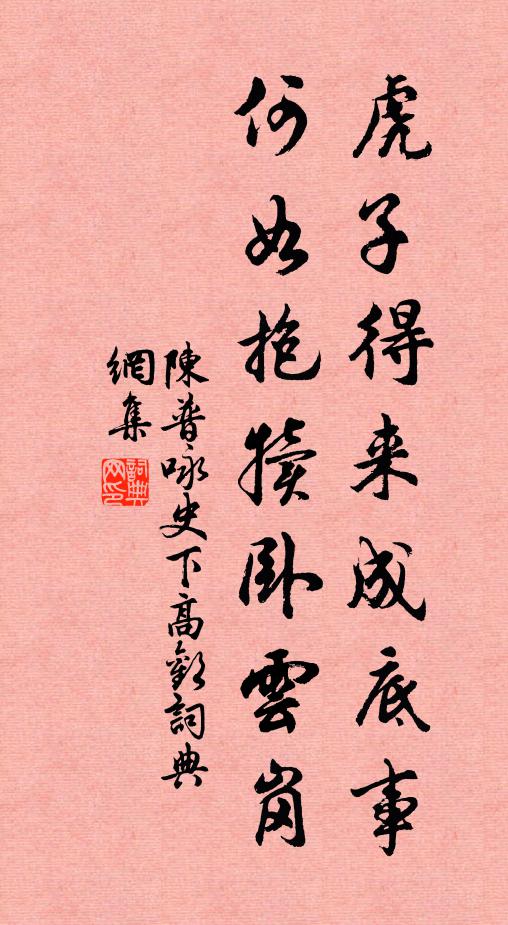 虎子得来成底事
何如抱犢卧雲崗
陳普咏史下高歡詞典
網集
詞典網印